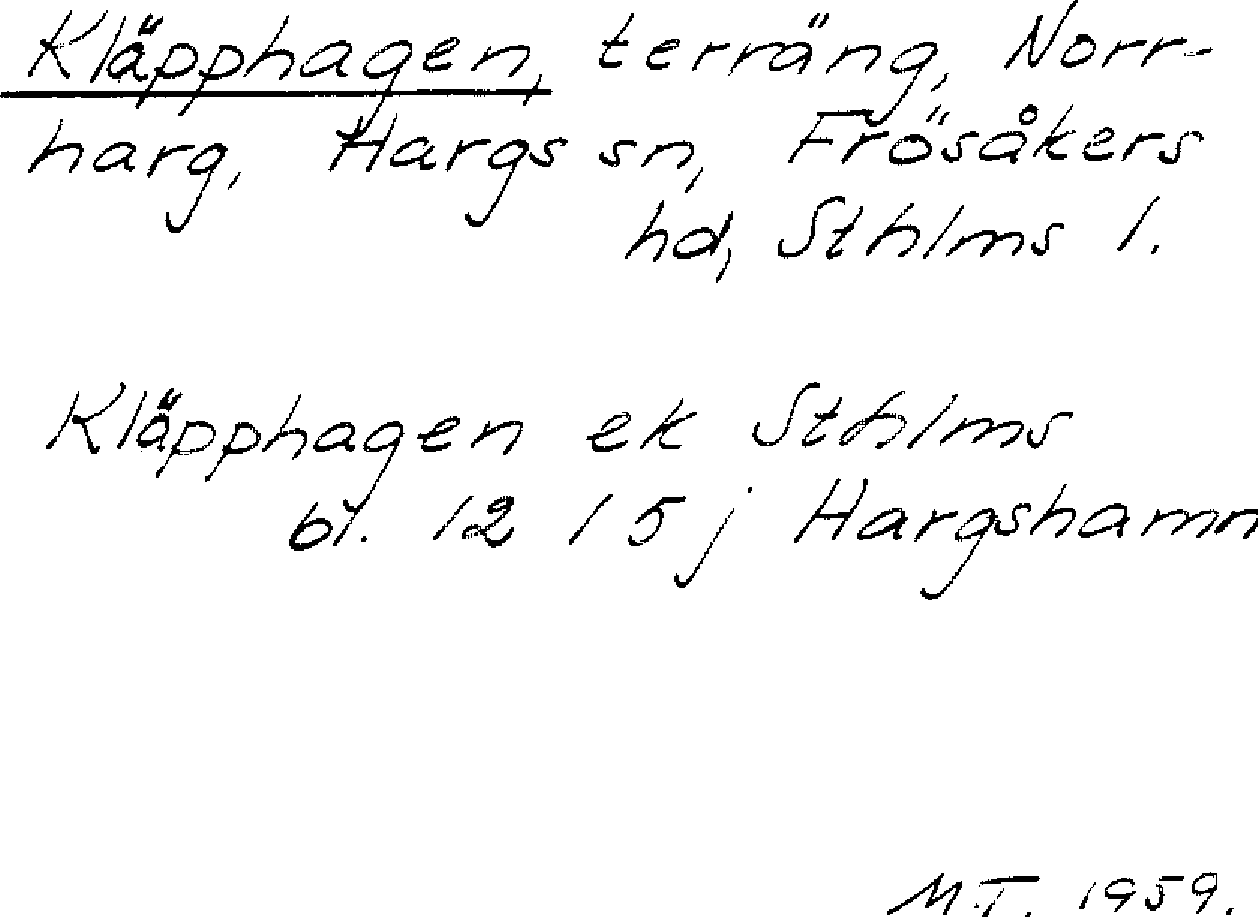 Kläpphagen, terräng, Norr-
harg, Hargs sn, Frösåkers
hd, Sthlms l.
Kläpphagen ek Sthlms
bl. 12 I 5 j Hargshamn
M.T. 1959.